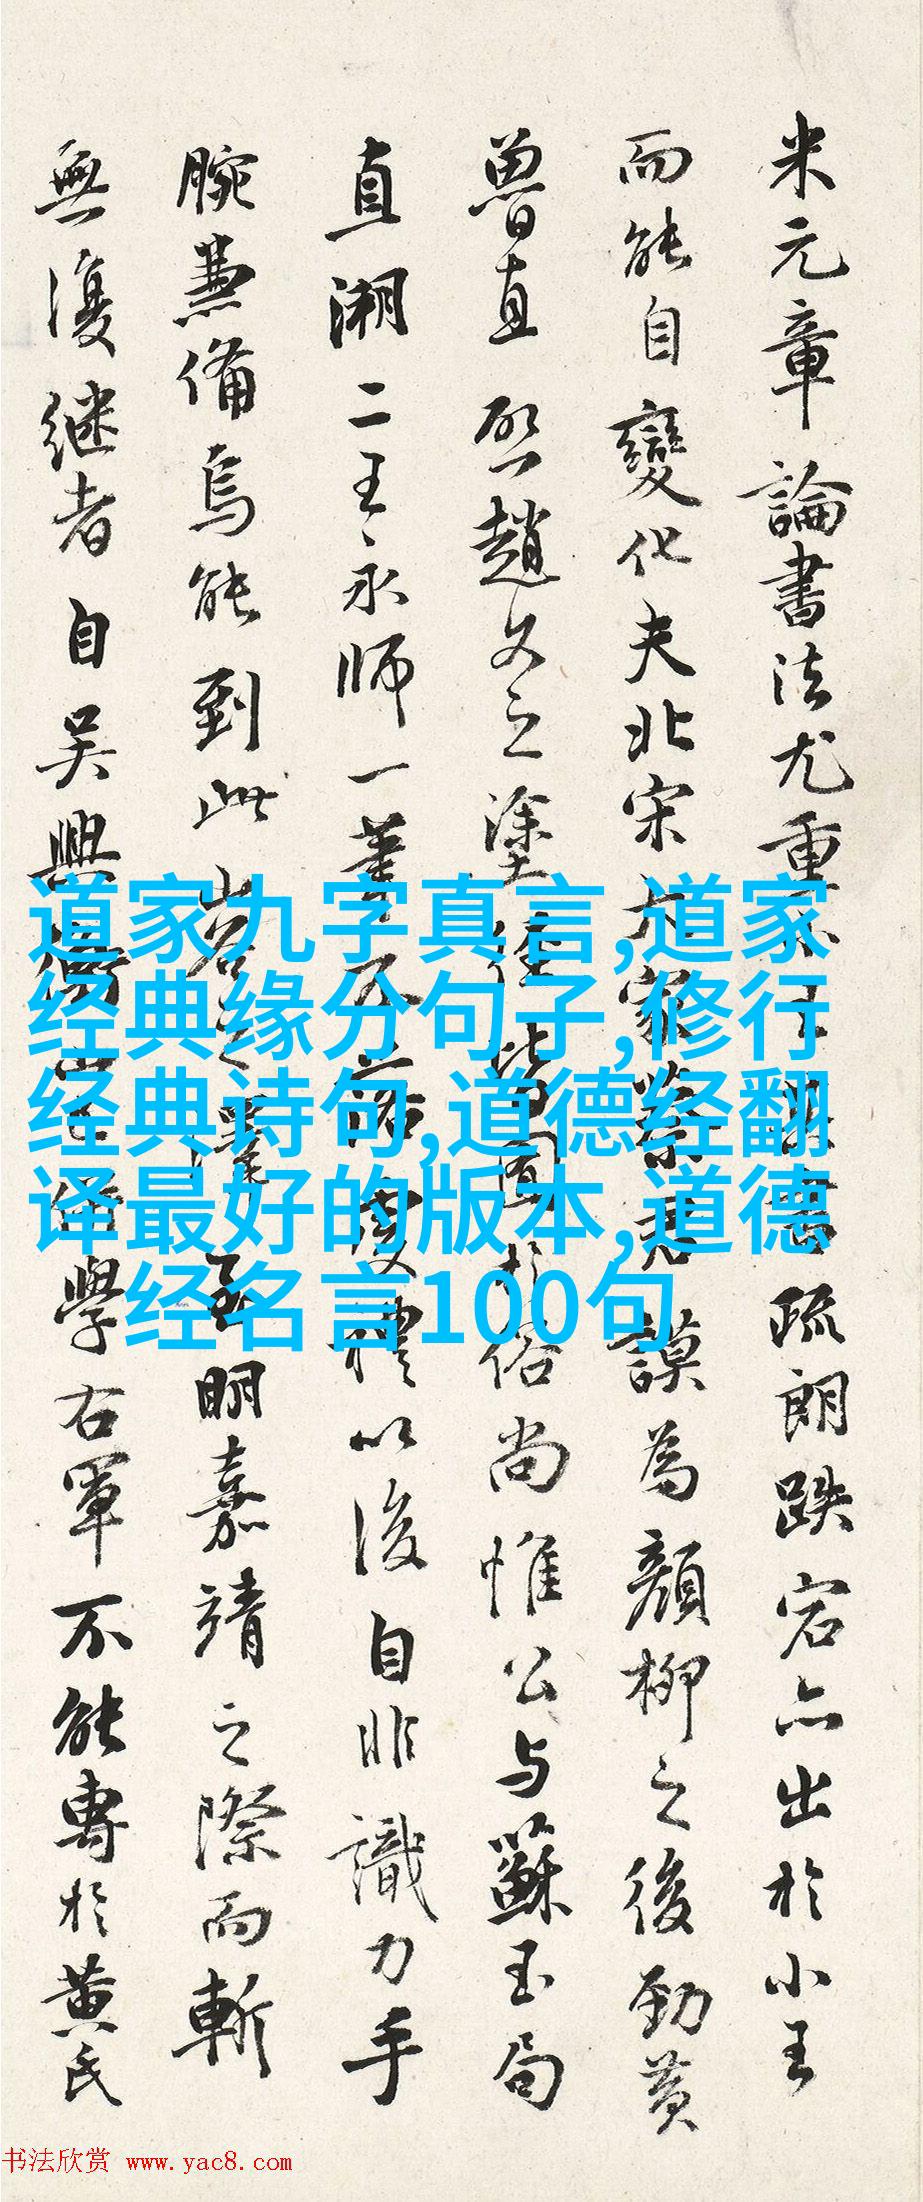 米元章論書法尤重疏朗跌宕亦出於小王
而能自變化夫北宋六家蔡君謨為顏柳之後勁黃
魯直 趙文之塗塗皆囿於俗尚惟公与蘇玉局
直溯二王永師一筆不落唐禮以後自非識力手
腕兼備烏能到此嘉靖之際而斬
無復継者自吳興學右軍不能專於黃氏
道家九字真言,道家
经典缘分句子,修行
经典诗句,道德经翻
译最好的版本,道德
经名言100句
书法欣赏 www.yac8.com